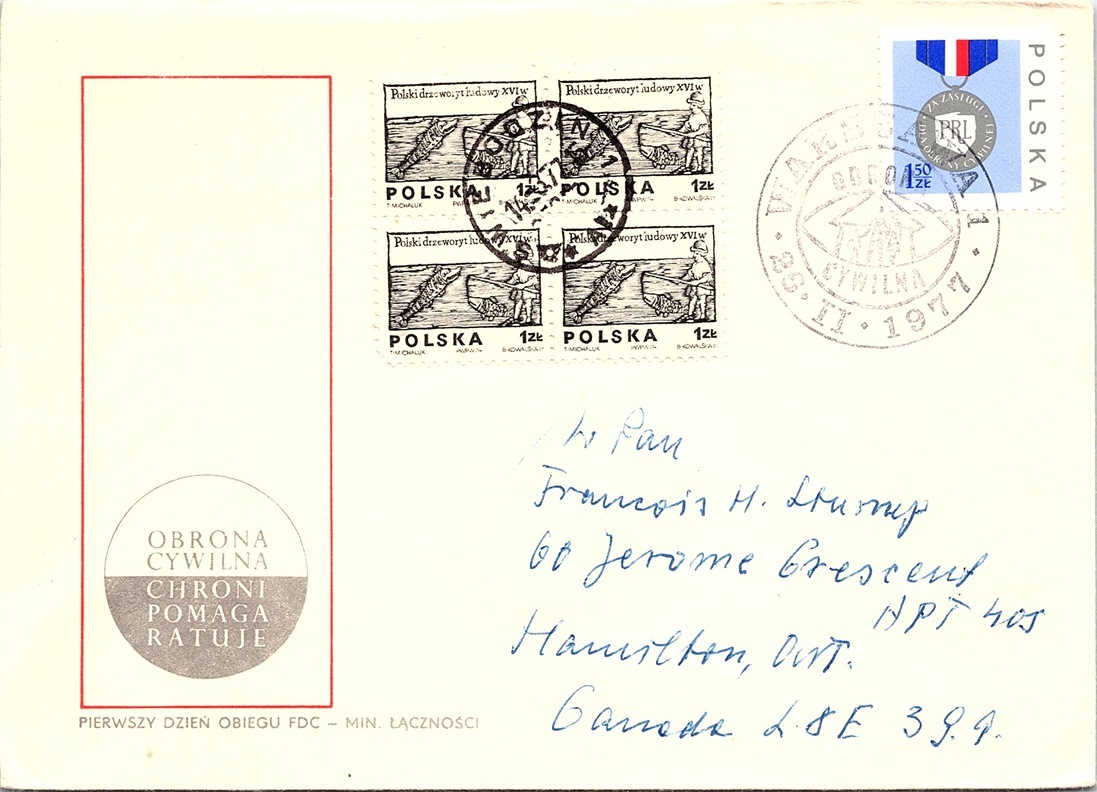 Polski drzeworyt ludowy XVI w
POLSKA 1ZŁ
T·MICHALUK PWPW·74 B·KOWALSKA
Polski drzeworyt ludowy XVI w
POLSKA 1ZŁ
T·MICHALUK PWPW·74 B·KOWALSKA
Polski drzeworyt ludowy XVI w
POLSKA 1ZŁ
T·MICHALUK PWPW·74 B·KOWALSKA
Polski drzeworyt ludowy XVI w
POLSKA 1ZŁ
T·MICHALUK PWPW·74 B·KOWALSKA
ŚWIEBODZIN 1
POLSKA
ZA ZASŁUGI
DLA OBRONY CYWILNEJ
PRL
1 50 ZŁ
WARSZAWA 1
OBRONA
CYWILNA
26·II·1977
W Pan
Francois H.
60 Jerome Crescent
APT 405
Hamilton, Ont.
Canada L8E 3G9.
OBRONA
CYWILNA
CHRONI
POMAGA
RATUJE
PIERWSZY DZIEŃ OBIEGU FDC – MIN. ŁĄCZNOŚCI